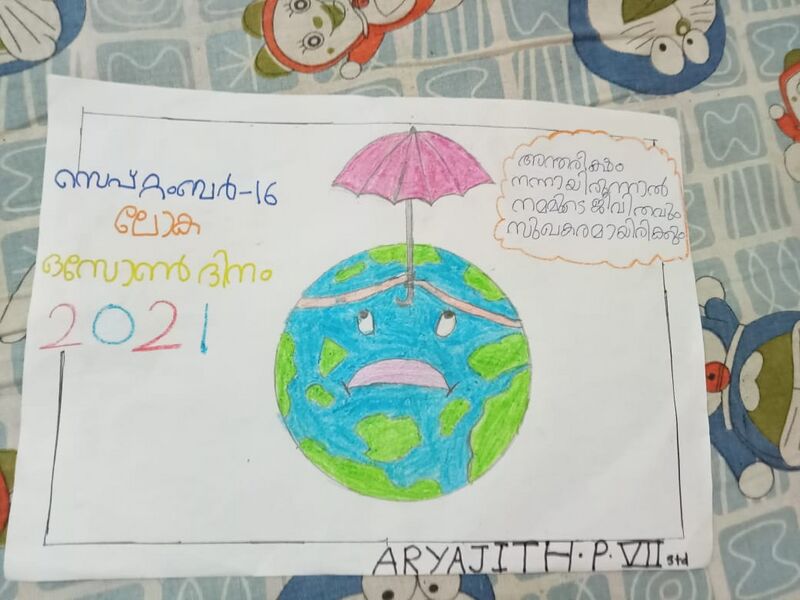 സെപ്റ്റംബർ-16
ലോക
ഓസോൺ ദിനം
2021
അന്തരീക്ഷം
നന്നായിരുന്നാൽ
നമ്മുടെ ജീവിതവും
സുഖകരമായിരിക്കും
ARYAJITH.P. VII std